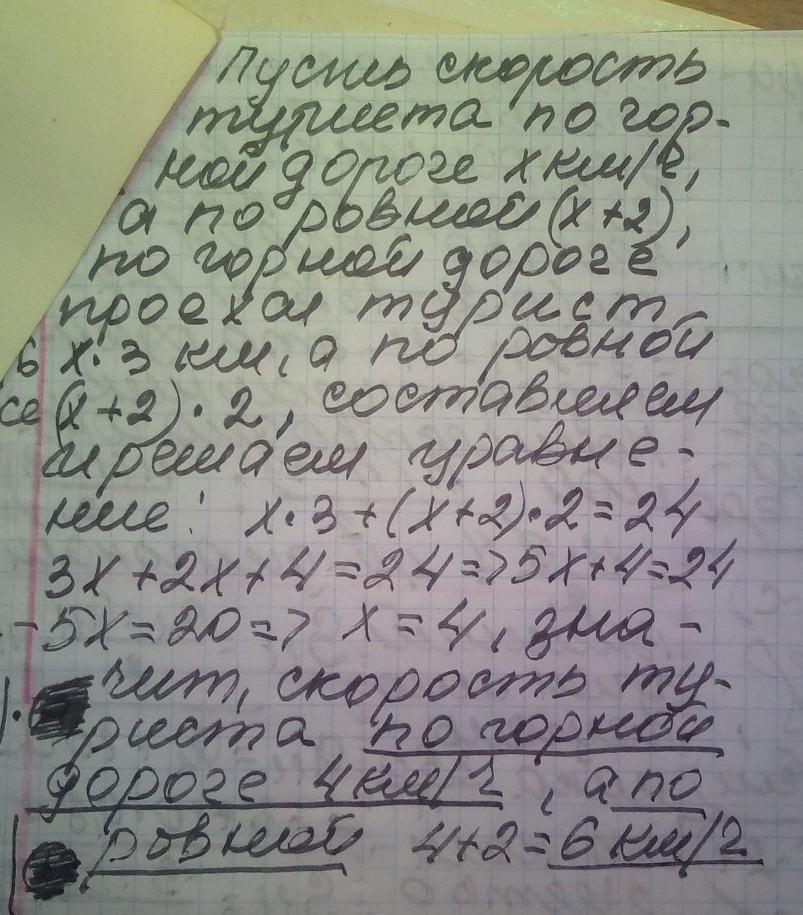 Пусть скорость
туриста по гор-
ной дороге х км/ч,
а по ровной (х+2),
по горной дороге
проехал турист
х·3 км, а по ровной
(х+2)·2, составляем
и решаем уравне-
ние: х·3+(х+2)·2=24
3х+2х+4=24=>5х+4=24
5х=20=> х=4, зна-
чит, скорость ту-
риста по горной
дороге 4 км/ч, а по
ровной 4+2=6 км/ч